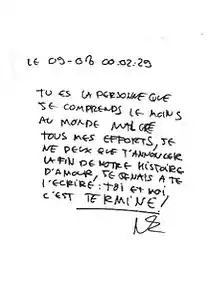 LE 09-08 00.02:29
TU ES LA PERSONNE QUE
JE COMPRENDS LE MOINS
AU MONDE MALGRÉ
TOUS MES EFFORTS, JE
NE PEUX QUE T'ANNONCER
LA FIN DE NOTRE HISTOIRE
D'AMOUR, JE TENAIS A TE
L'ECRIRE : TOI ET MOI,
C'EST TERMINÉ !